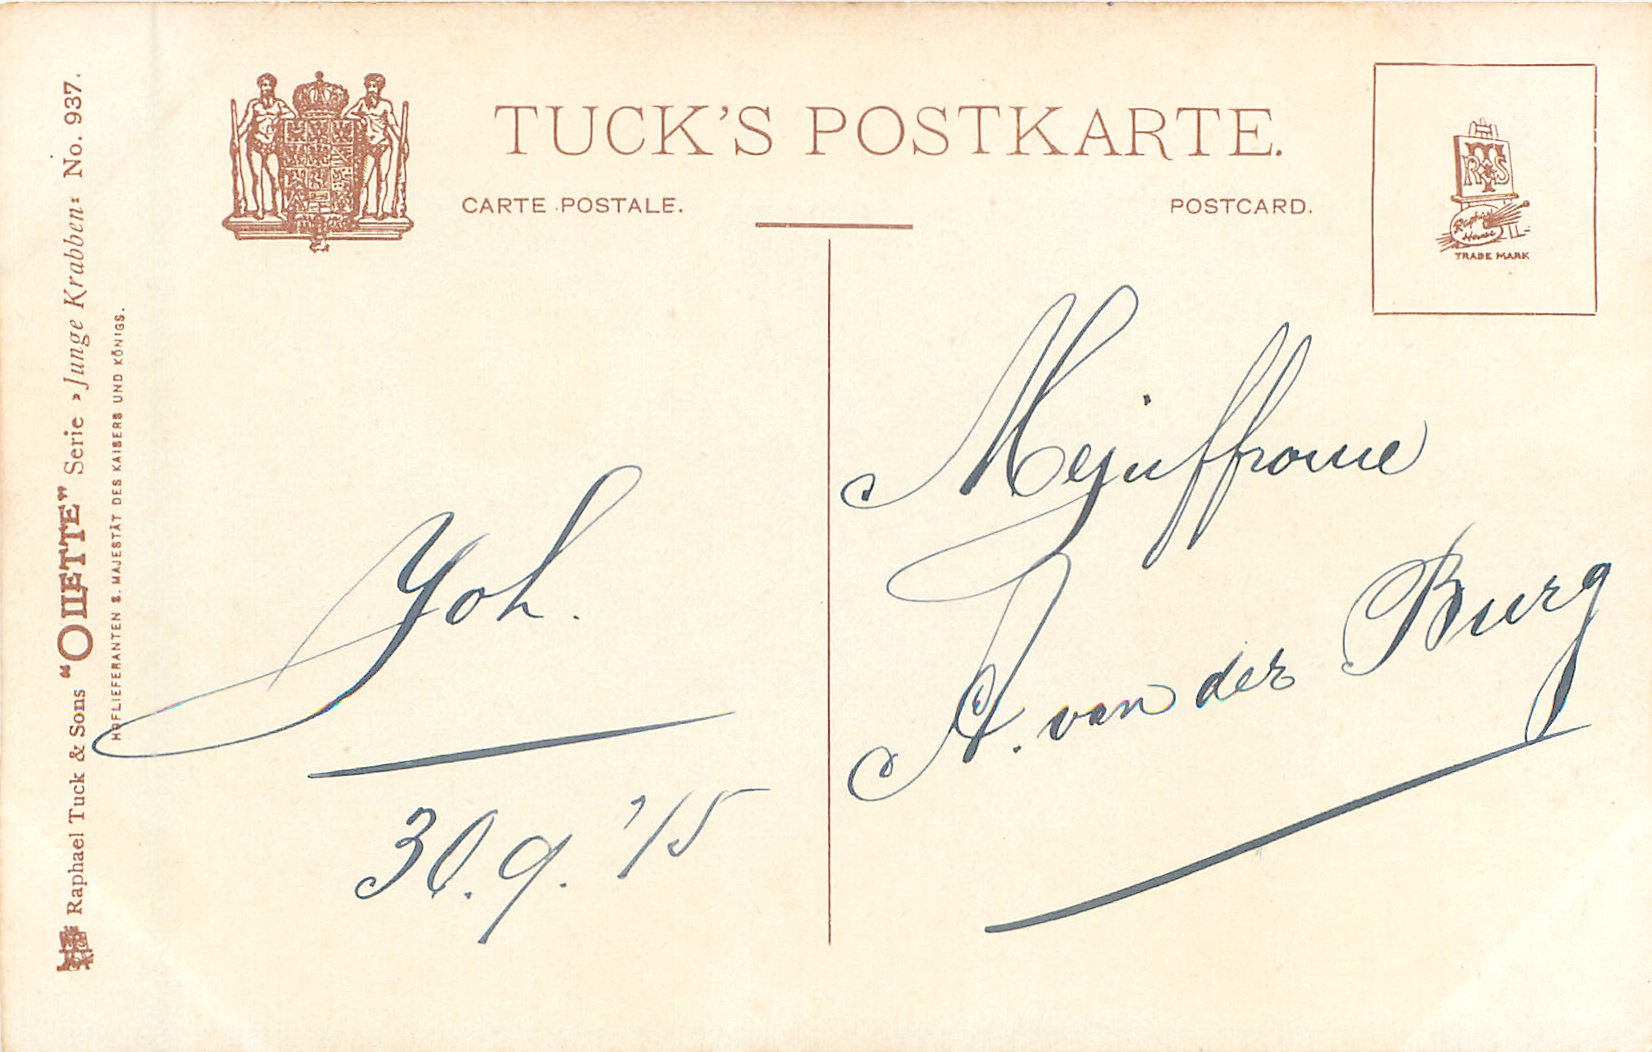 TUCK'S POSTKARTE.
CARTE POSTALE.
POSTCARD.
RTS
Raphael
House
TRADE MARK
Raphael Tuck & Sons "OILETTE" Serie »Junge Krabben« No. 937.
HOFLIEFERANTEN S. MAJESTÄT DES KAISERS UND KÖNIGS.
Joh.
30.9.'15
Mejuffrouw
A. van der Burg